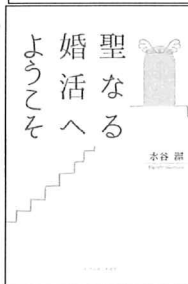 聖なる
婚活へ
ようこそ
水谷